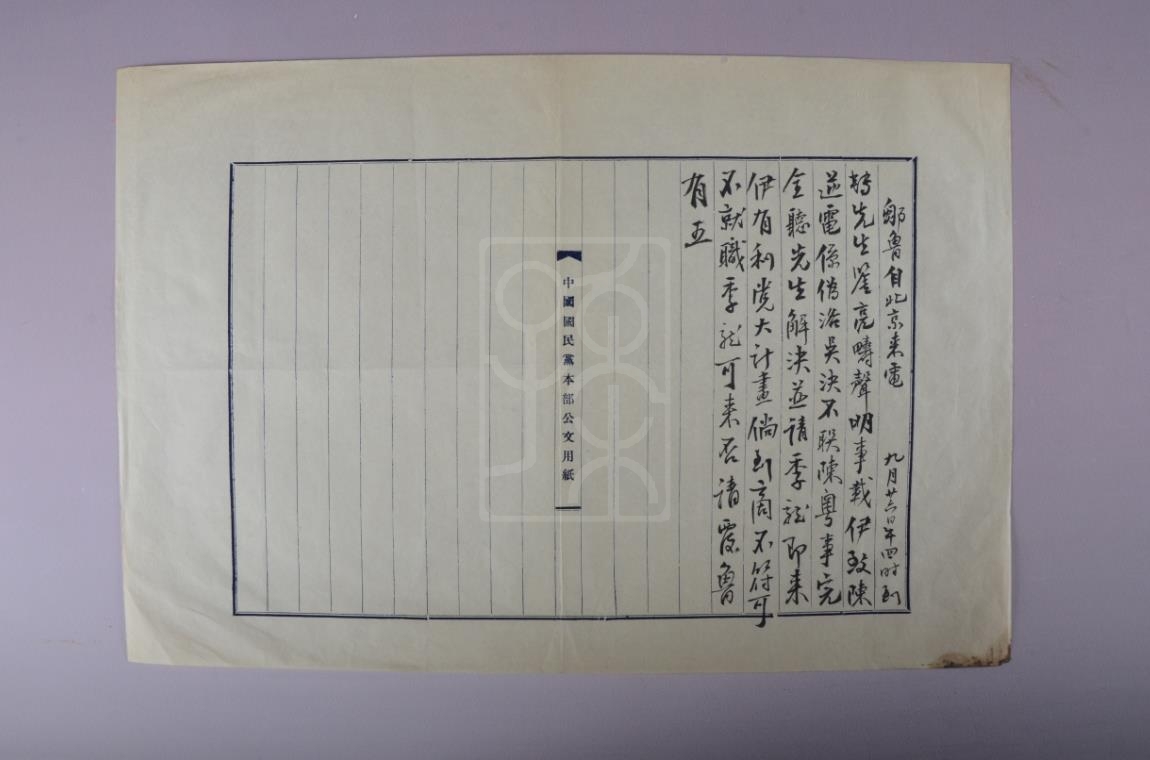 鄒魯自北京來電 九月廿六日午四時到
轉先生鑒亮疇聲明事載伊致陳
逆電係偽洛吳決不聯陳粵事完
全聽先生解決並請季龍即來
伊有利党大計畫倘到商不符可
不就職季龍可来否請覆魯
有五
中國國民黨本部公文用紙